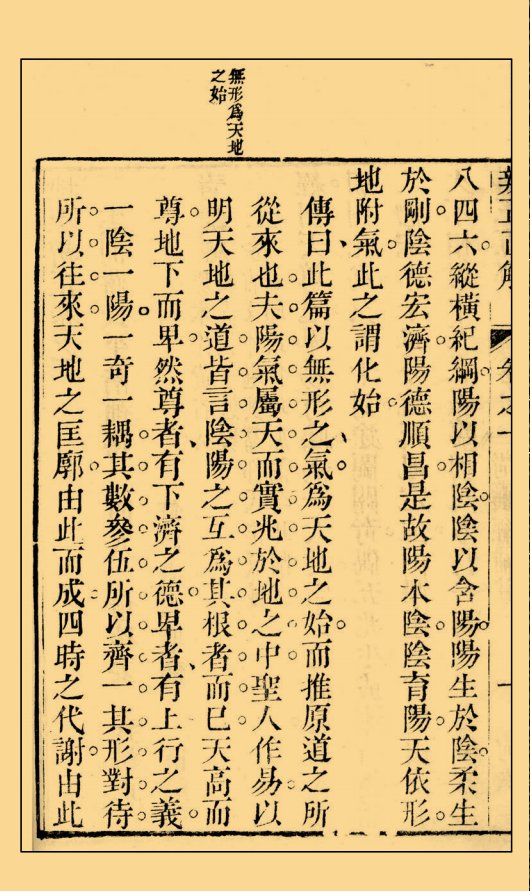 無形爲天地
之始
八四六縱橫紀綱陽以相陰陰以含陽陽生於陰柔生
於剛陰德宏濟陽德順昌是故陽本陰陰育陽天依形
地附氣此之謂化始
傳曰此篇以無形之氣爲天地之始而推原道之所
從來也夫陽氣屬天而實兆於地之中聖人作易以
明天地之道皆言陰陽之互爲其根者而已天高而
尊地下而卑然尊者有下濟之德卑者有上行之義
一陰一陽一奇一耦其數參伍所以齊一其形對待
所以往來天地之匡廓由此而成四時之代謝由此